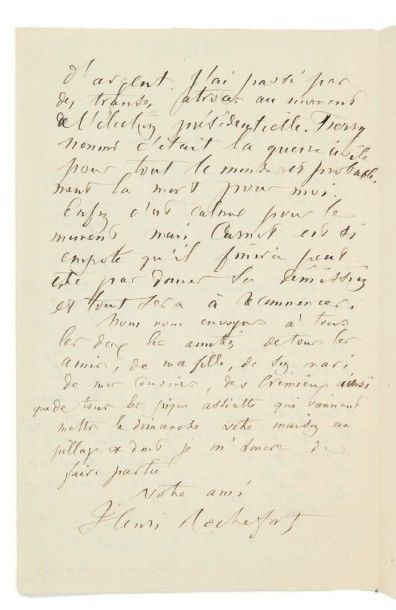 d'argent. J'ai passé par
des transes atroces au moment
de l'élection présidentielle. Ferry
nommé c'était la guerre civile
pour tout le monde et probable-
ment la mort pour moi.
Enfin c'est calmé pour le
moment mais Carnot est si
empoté qu'il finira peut
être par donner sa démission
et tout sera à recommencer.
Nous vous envoyons à tous
les deux les amitiés de tous les
amis, de ma fille, de son mari,
de mes cousines, des Crémieux ainsi
que de tous les pique assiette qui viennent
mettre le dimanche votre maison au
pillage et dont je m'honore de
faire partie
Votre ami
Henri Rochefort